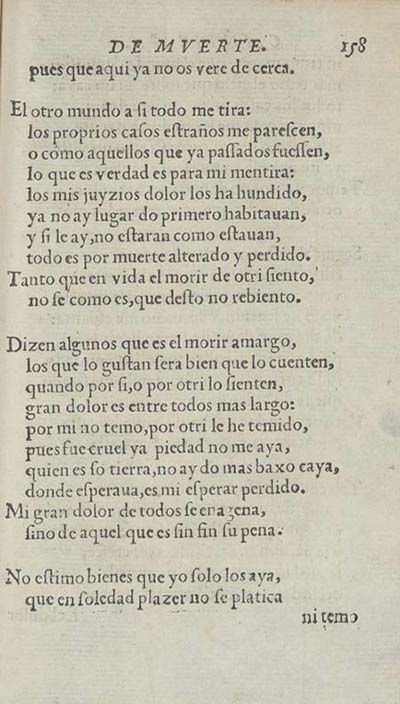 DE MVERTE. 158
pues que aqui ya no os vere de cerca.
El otro mundo a ſi todo me tira:
los proprios caſos eſtraños me pareſcen,
o como aquellos que ya paſſados fueſſen,
lo que es verdad es para mi mentira:
los mis juyzios dolor los ha hundido,
ya no ay lugar do primero habitauan,
y ſi le ay, no eſtaran como eſtauan,
todo es por muerte alterado y perdido.
Tanto que en vida el morir de otri ſiento,
no ſe como es, que deſto no rebiento.
Dizen algunos que es el morir amargo,
los que lo guſtan ſera bien que lo cuenten,
quando por ſi, o por otri lo ſienten,
gran dolor es entre todos mas largo:
por mi no temo, por otri le he temido,
pues fue cruel ya piedad no me aya,
quien es ſo tierra, no ay do mas baxo caya,
donde eſperaua, es mi eſperar perdido.
Mi gran dolor de todos ſe enagena,
ſino de aquel que es ſin fin ſu pena.
No eſtimo bienes que yo ſolo los aya,
que en ſoledad plazer no ſe platica
ni temo